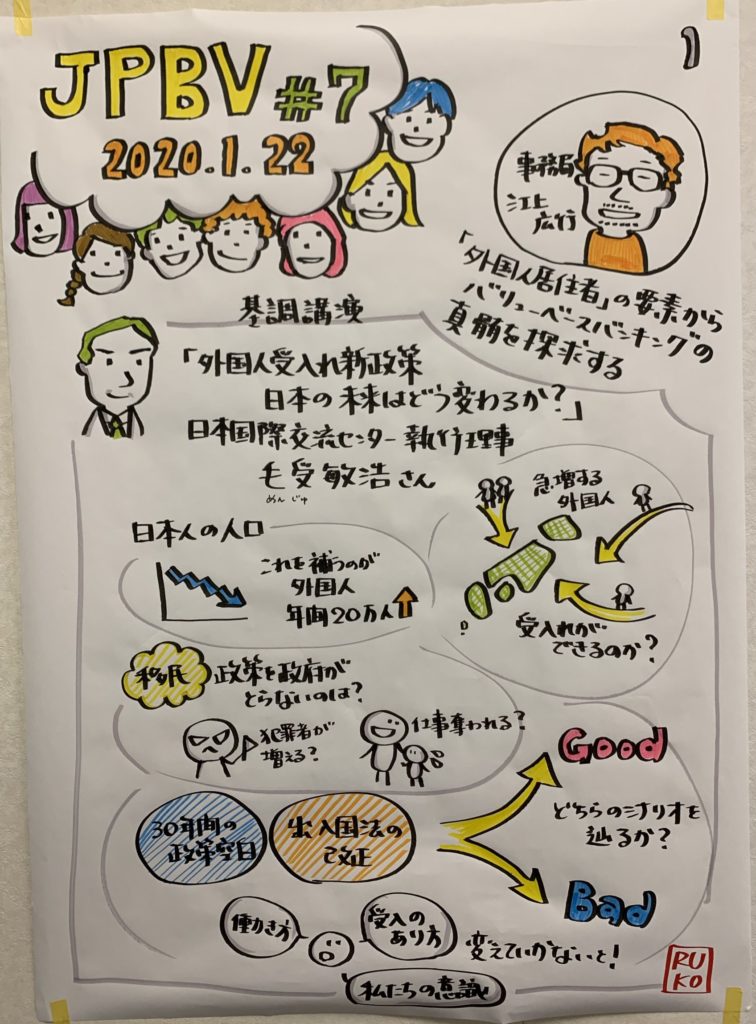 1
JPBV #7
2020.1.22
事務局
江上
広行
「外国人居住者」の要素から
バリューベースバンキングの
真髄を探求する
基調講演
「外国人受入れ新政策
日本の未来はどう変わるか?」
日本国際交流センター 執行理事
毛受敏浩さん
めんじゅ
日本人の人口
これを補うのが
外国人
年間20万人
急増する
外国人
受入れが
できるのか?
移民 政策を政府が
とらないのは?
犯罪者が
増える?
仕事奪われる?
30年間の
政策空白
出入国法の
改正
Good
どちらのシナリオを
辿るか?
Bad
働き方
受入の
あり方
変えていかないと!
私たちの意識
RU
KO